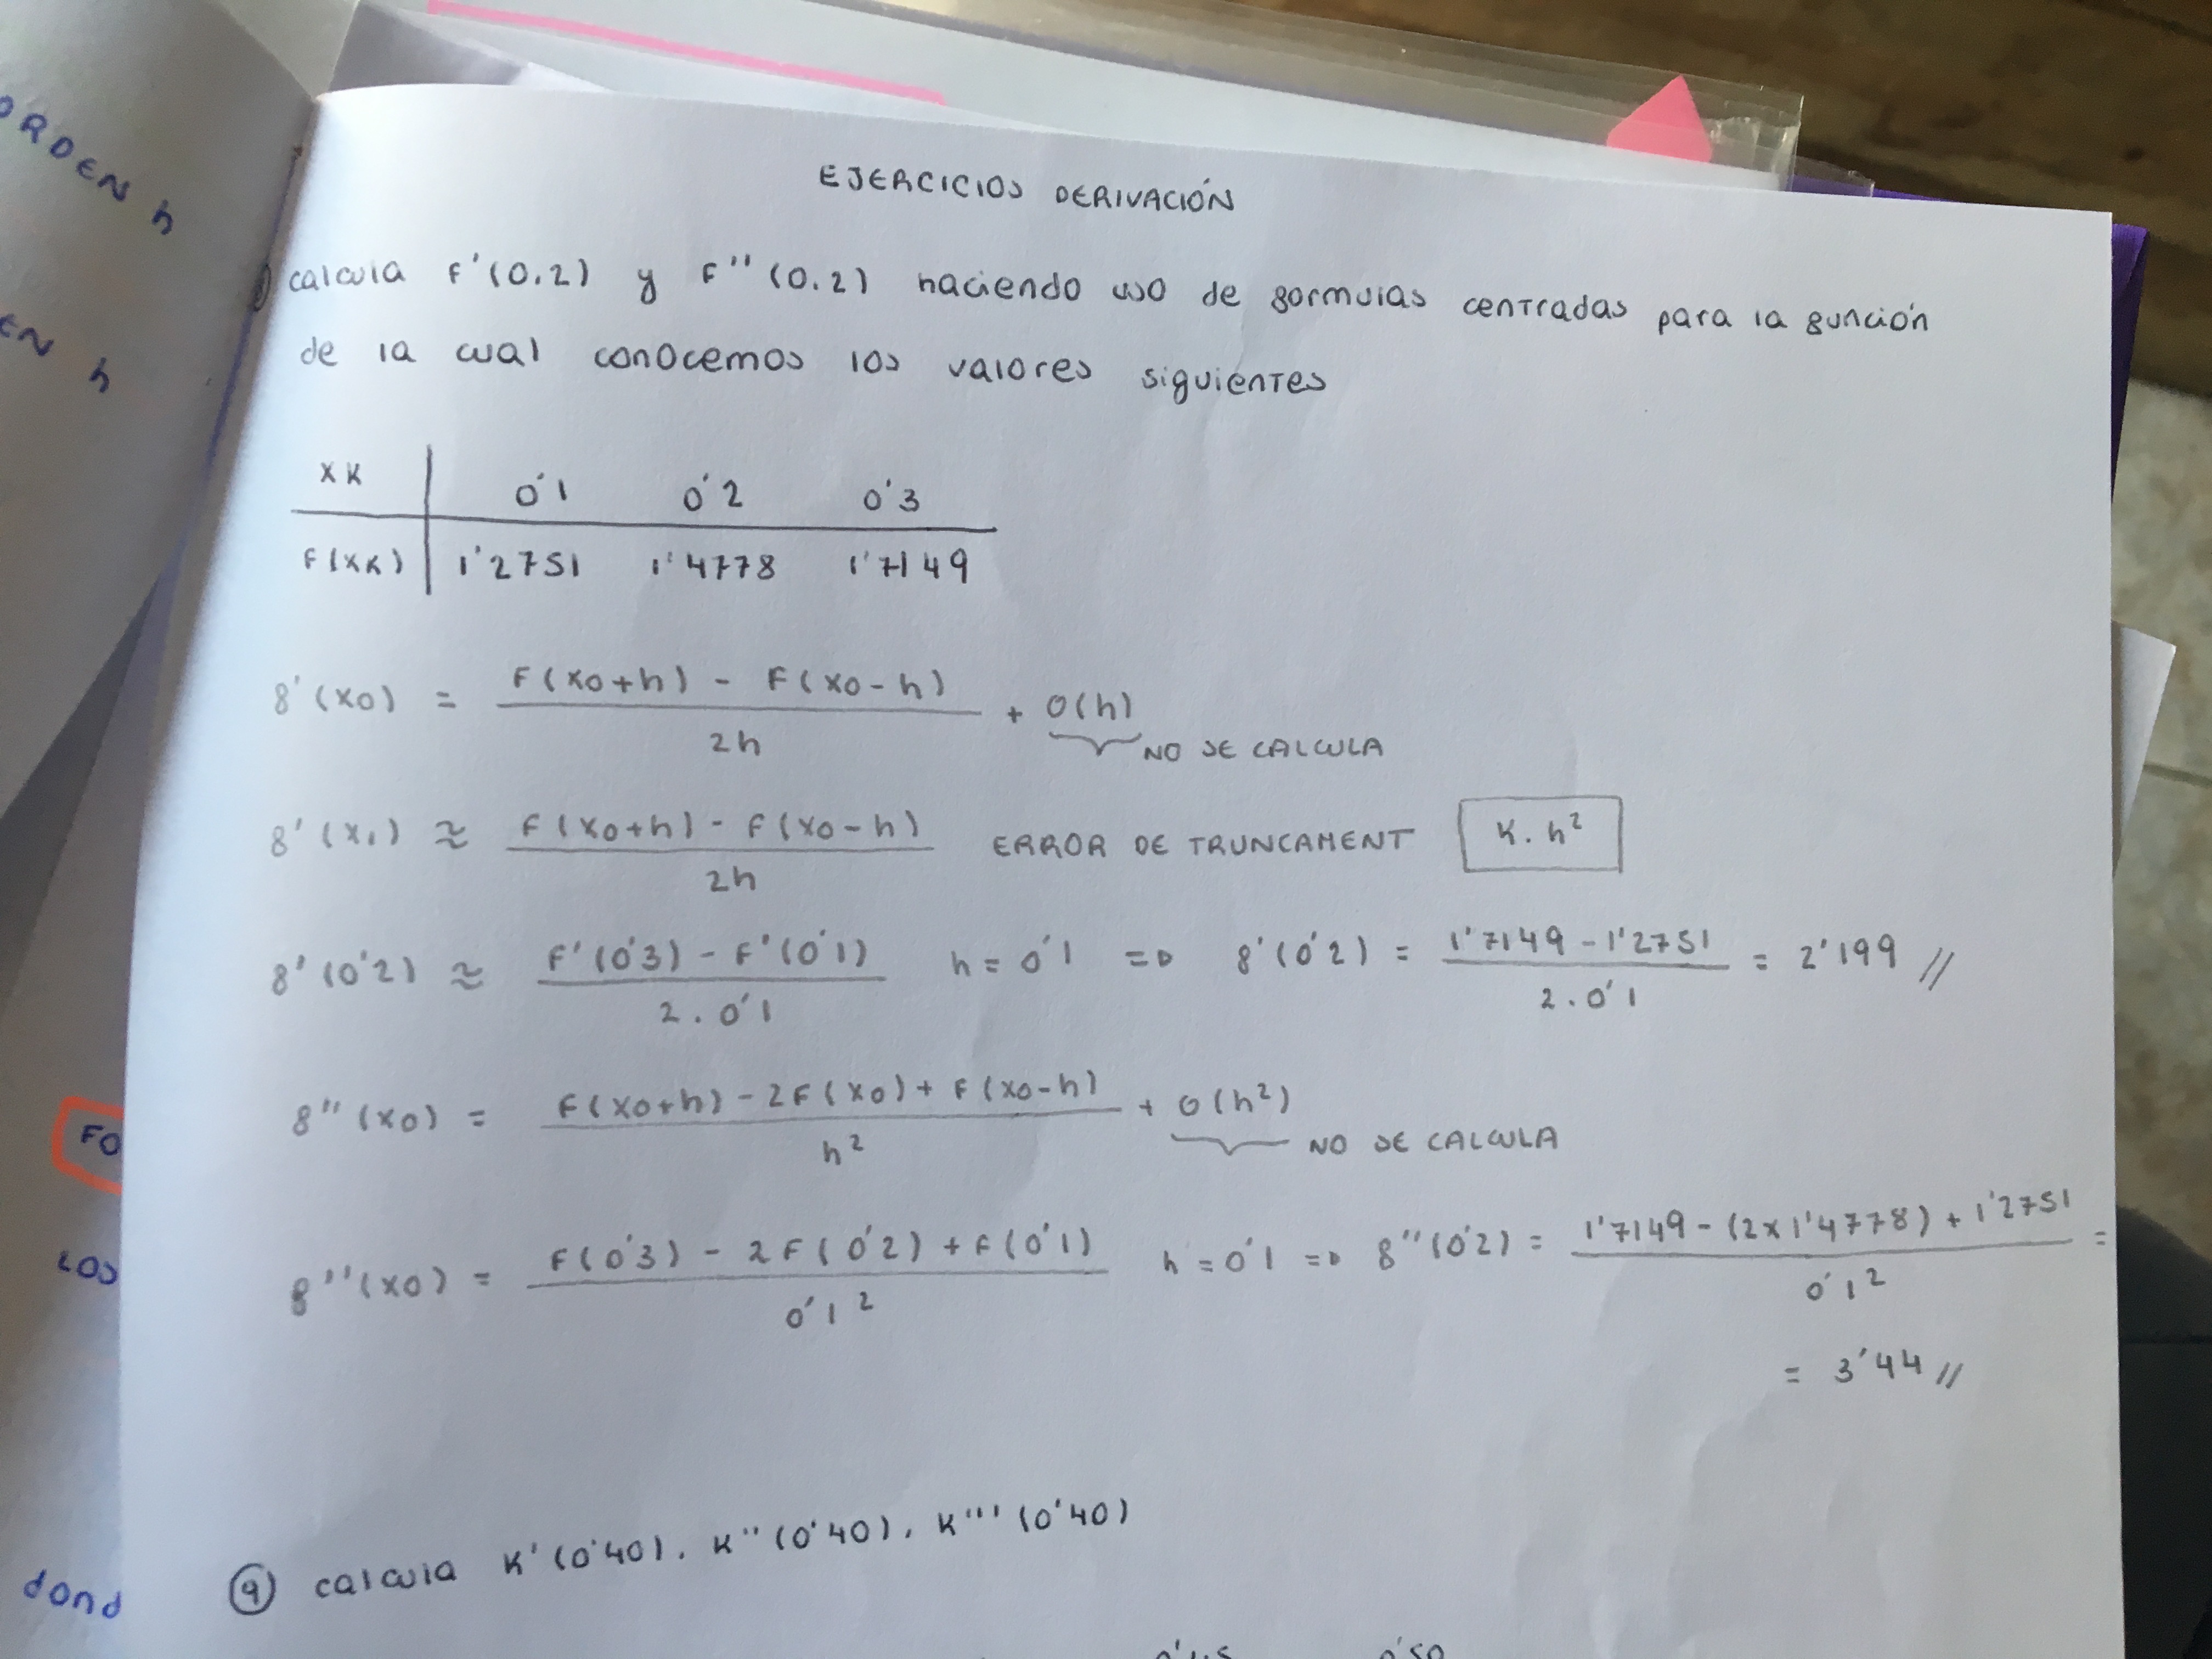 ORDEN h
EN h
FO
LOS
dond
EJERCICIOS DERIVACIÓN
calcula F'(0.2) y F''(0.2) haciendo uso de formulas centradas para la función
de la cual conocemos los valores siguientes
XK | 0'1 0'2 0'3
F(XK) | 1'2751 1'4778 1'7149
f'(x0) = F(x0+h) - F(x0-h) / 2h + O(h) NO SE CALCULA
f'(x1) ≈ F(x0+h) - F(x0-h) / 2h ERROR DE TRUNCAMENT K.h²
f'(0'2) ≈ F'(0'3) - F'(0'1) / 2.0'1 h = 0'1 => f'(0'2) = 1'7149 - 1'2751 / 2.0'1 = 2'199 //
f''(x0) = F(x0+h) - 2F(x0) + F(x0-h) / h² + O(h²) NO SE CALCULA
f''(x0) = F(0'3) - 2F(0'2) + F(0'1) / 0'1² h = 0'1 => f''(0'2) = 1'7149 - (2x1'4778) + 1'2751 / 0'1² =
= 3'44 //
9 calcula K'(0'40), K''(0'40), K'''(0'40)
0'50